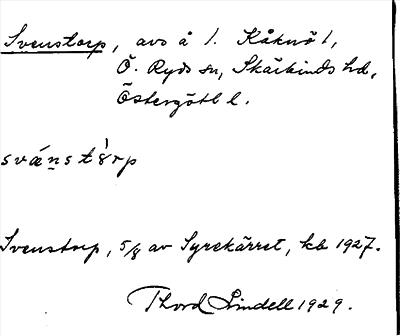 Svenstorp, avs å 1. Kåknö 1,
Ö. Ryds sn, Skärkinds hd,
Östergötl l.
Svenstorp, 5/8 av Syrekärret, kb 1927.
Thord Lindell 1929.